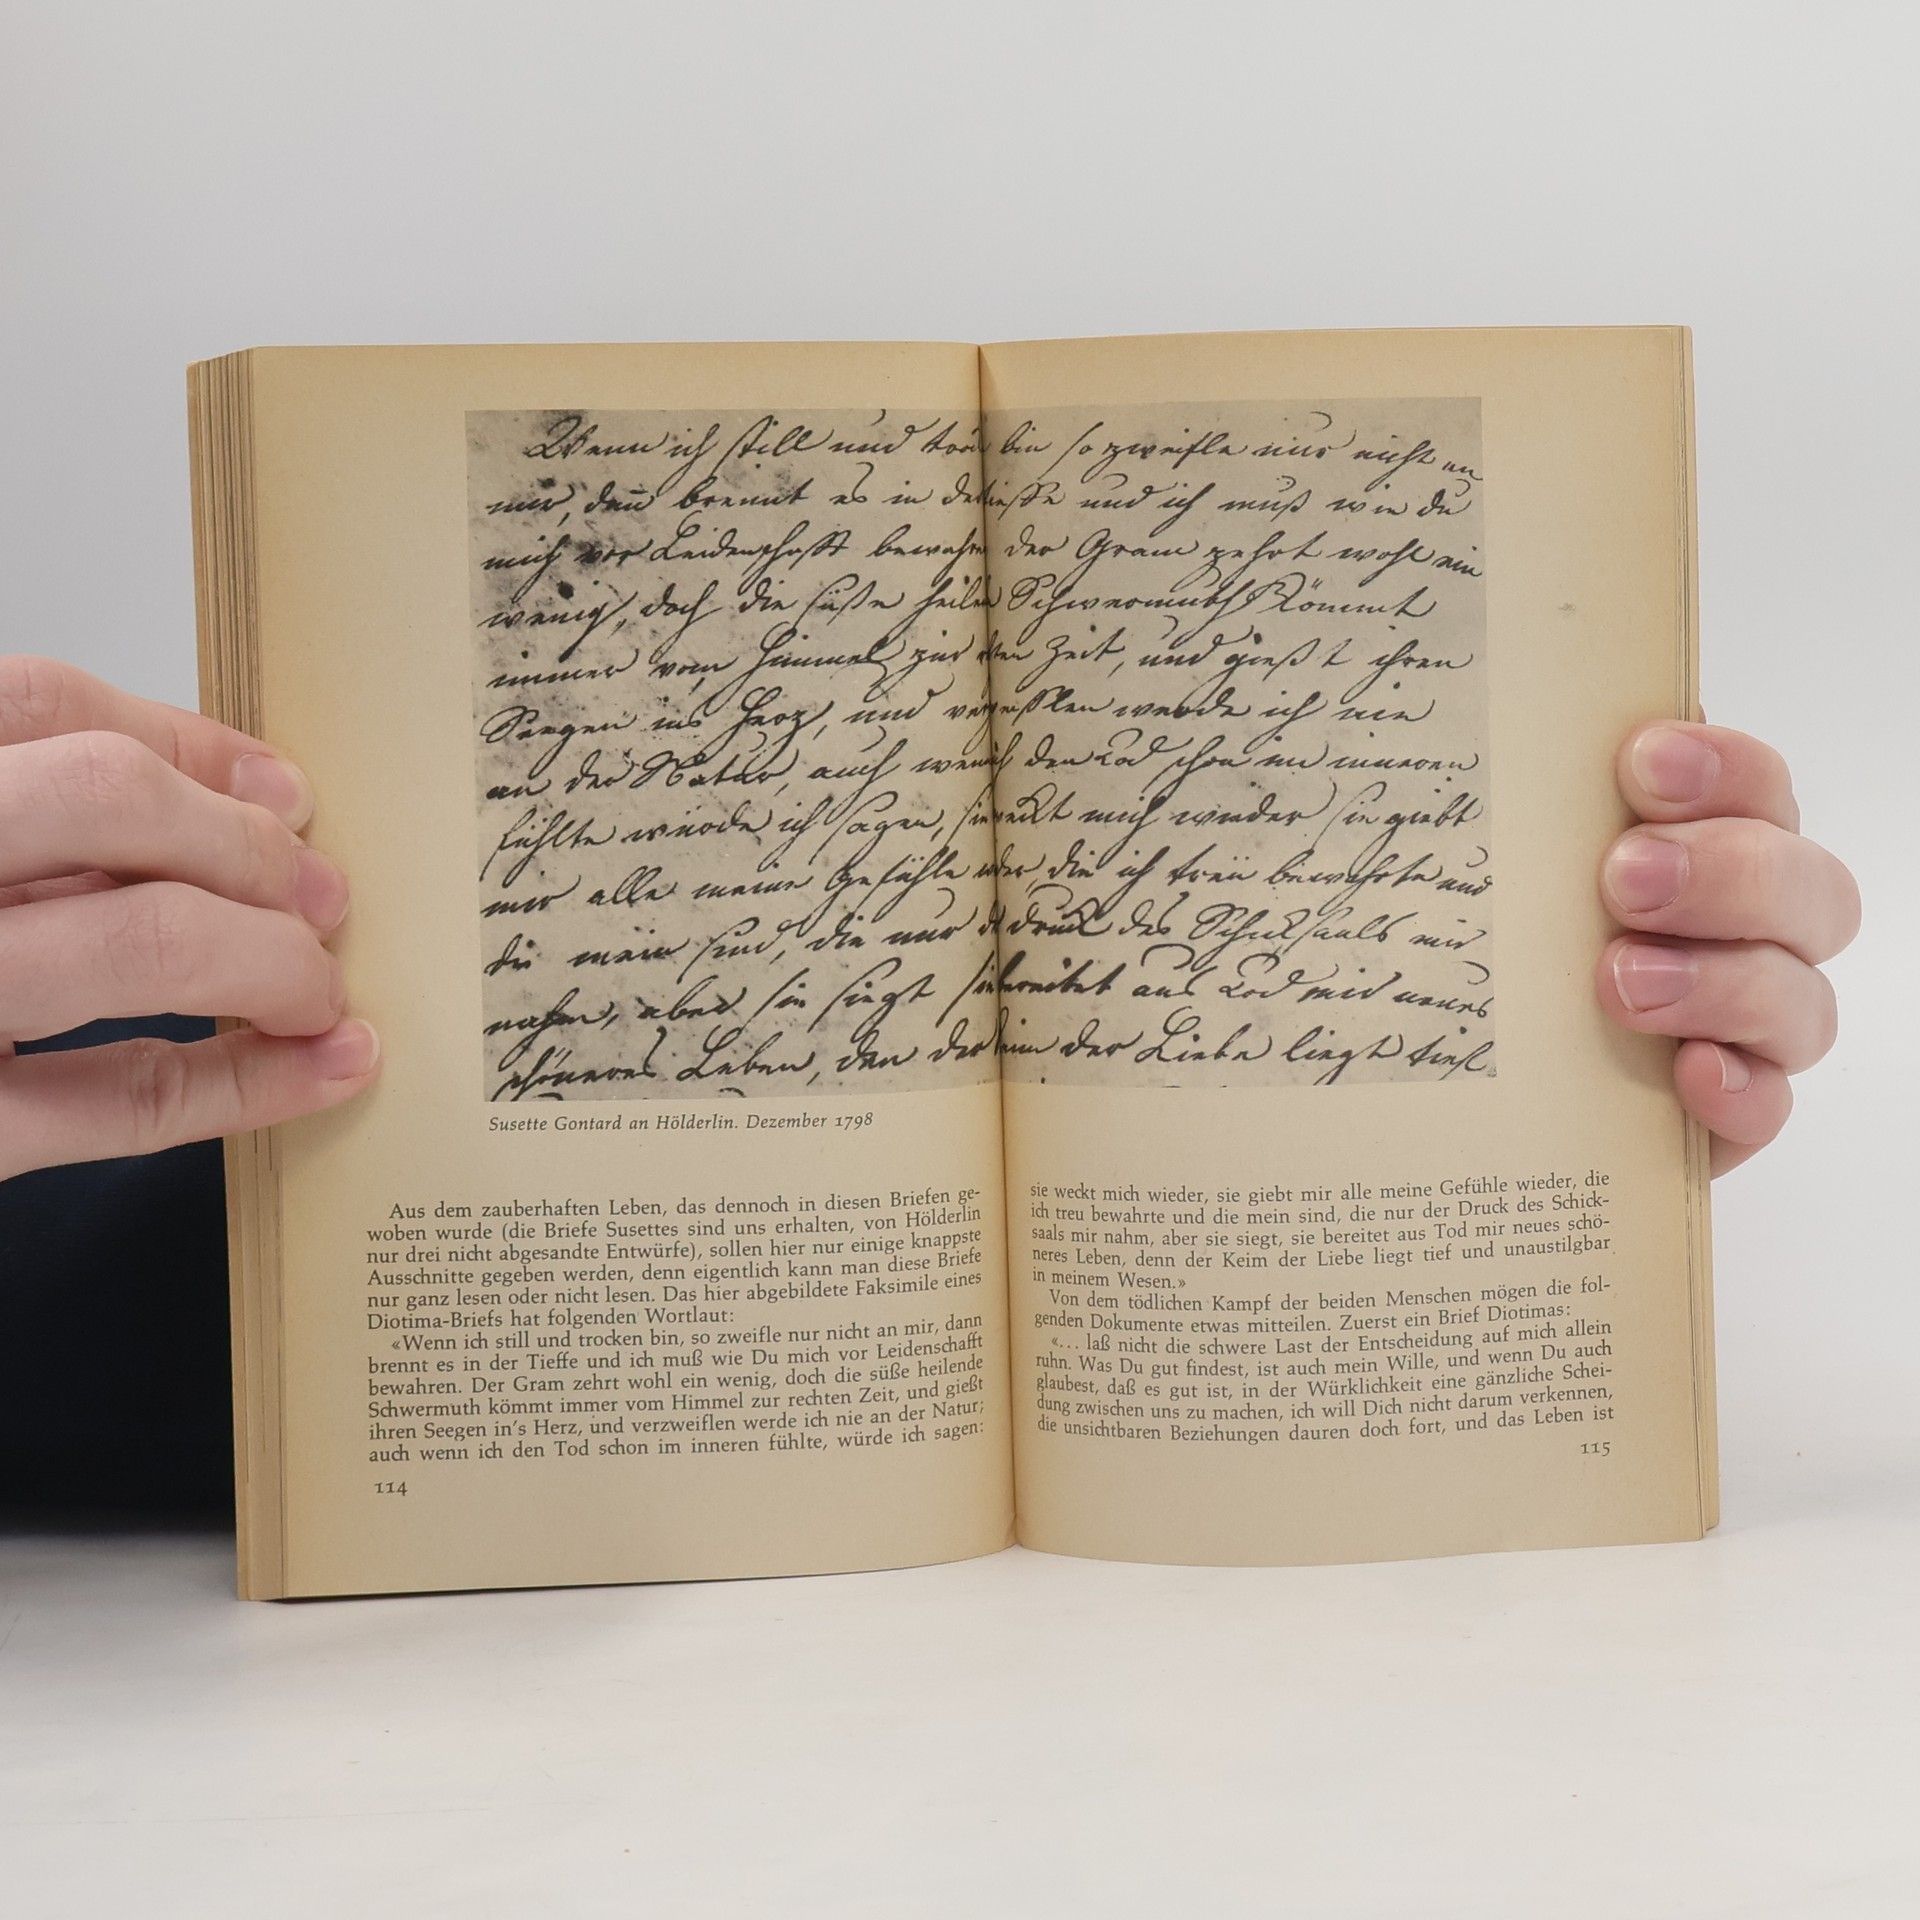 Wenn ich still und trocken bin so zweifle nur nicht an
mir, dann brennt es in der Tieffe und ich muß wie du
mich vor Leidenschafft bewahren der Gram zehrt wohl ein
wenig, doch die süße heilende Schwermuth kömmt
immer vom Himmel zur rechten Zeit, und gießt ihren
Seegen ins Herz, und verzweifflen werde ich nie
an der Natur, auch wenn ich den Tod schon im inneren
fühlte würde ich sagen, sie weckt mich wieder sie giebt
mir alle meine Gefühle wieder, die ich treu bewahrte und
die mein sind, die nur der druck des Schicksaals mir
nahm, aber sie siegt sie bereitet aus Tod mir neues
schöneres Leben, den der Keim der Liebe liegt tief
Susette Gontard an Hölderlin. Dezember 1798
Aus dem zauberhaften Leben, das dennoch in diesen Briefen ge-
woben wurde (die Briefe Susettes sind uns erhalten, von Hölderlin
nur drei nicht abgesandte Entwürfe), sollen hier nur einige knappste
Ausschnitte gegeben werden, denn eigentlich kann man diese Briefe
nur ganz lesen oder nicht lesen. Das hier abgebildete Faksimile eines
Diotima-Briefs hat folgenden Wortlaut:
«Wenn ich still und trocken bin, so zweifle nur nicht an mir, dann
brennt es in der Tieffe und ich muß wie Du mich vor Leidenschafft
bewahren. Der Gram zehrt wohl ein wenig, doch die süße heilende
Schwermuth kömmt immer vom Himmel zur rechten Zeit, und gießt
ihren Seegen in's Herz, und verzweiflen werde ich nie an der Natur;
auch wenn ich den Tod schon im inneren fühlte, würde ich sagen:
114
sie weckt mich wieder, sie giebt mir alle meine Gefühle wieder, die
ich treu bewahrte und die mein sind, die nur der Druck des Schick-
saals mir nahm, aber sie siegt, sie bereitet aus Tod mir neues schö-
neres Leben, denn der Keim der Liebe liegt tief und unaustilgbar
in meinem Wesen.»
Von dem tödlichen Kampf der beiden Menschen mögen die fol-
genden Dokumente etwas mitteilen. Zuerst ein Brief Diotimas:
«... laß nicht die schwere Last der Entscheidung auf mich allein
ruhn. Was Du gut findest, ist auch mein Wille, und wenn Du auch
glaubest, daß es gut ist, in der Würklichkeit eine gänzliche Schei-
dung zwischen uns zu machen, ich will Dich nicht darum verkennen,
die unsichtbaren Beziehungen dauren doch fort, und das Leben ist
115